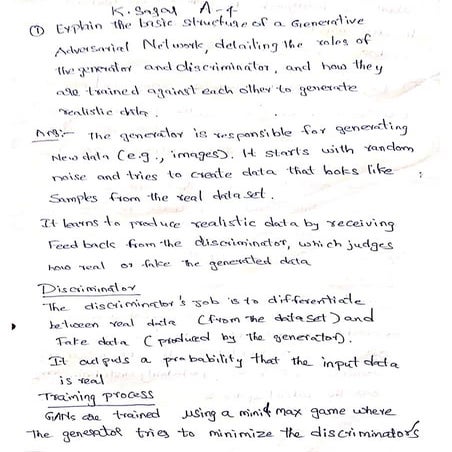 K. Sagar A-4
① Explain the basic structure of a Generative
Adversarial Network, detailing the roles of
the generator and discriminator, and how they
are trained against each other to generate
realistic data.
Ans:- The generator is responsible for generating
New data (e.g., images). It starts with random
noise and tries to create data that looks like
Samples from the real dataset.
It learns to produce realistic data by receiving
Feed back from the discriminator, which judges
how real or fake the generated data
Discriminator
The discriminator's job is to differentiate
between real data (from the dataset) and
Fake data (produced by the generator).
It outputs a probability that the input data
is real.
Training process
GANs are trained using a mini max game where
The generator tries to minimize the discriminator's